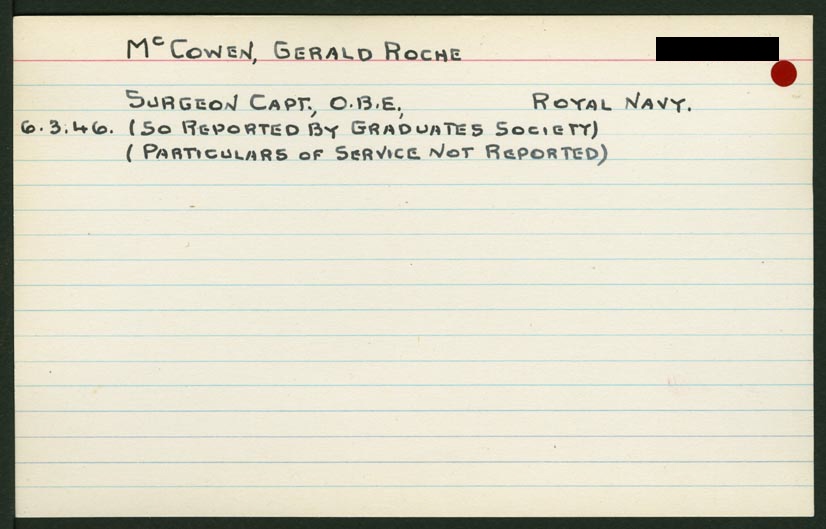 McCOWEN, GERALD ROCHE
SURGEON CAPT., O.B.E., ROYAL NAVY.
6.3.46. (SO REPORTED BY GRADUATES SOCIETY)
(PARTICULARS OF SERVICE NOT REPORTED)